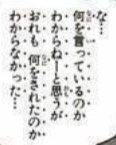 な…
何を言っているのか
わからねーと思うが
おれも 何をされたのか
わからなかった…